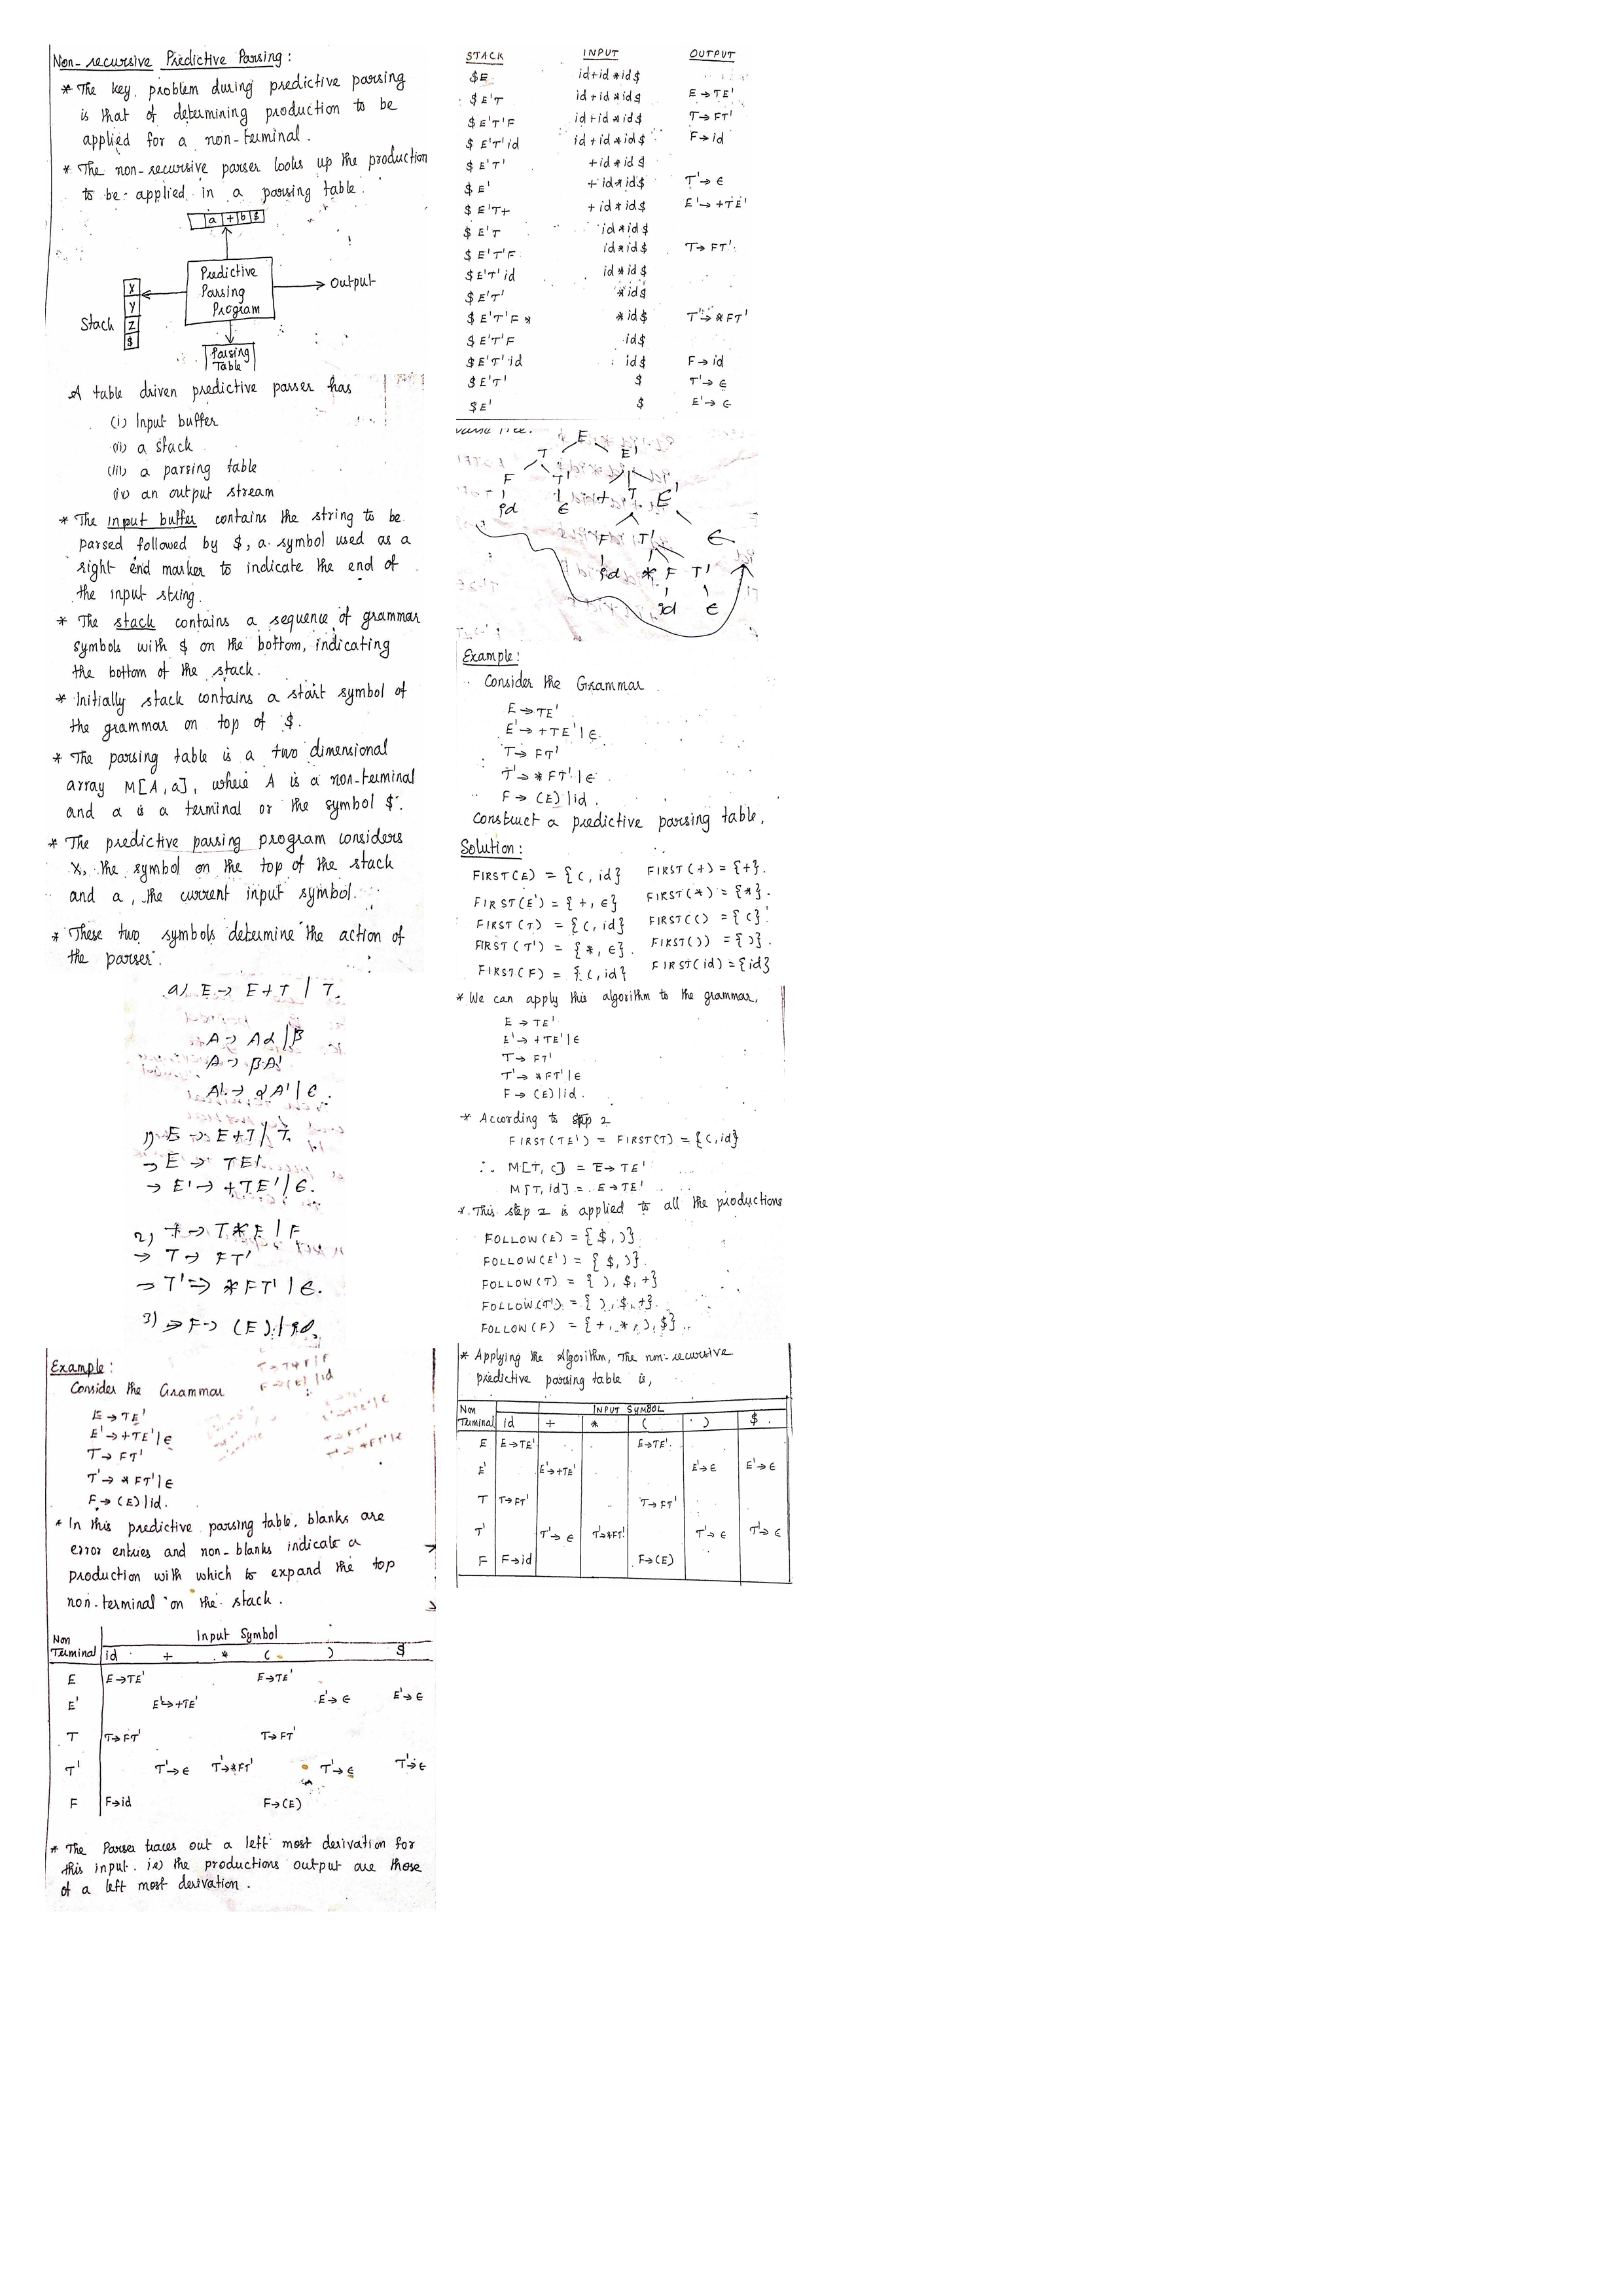 Non-recursive Predictive Parsing:
* The key problem during predictive parsing
is that of determining production to be
applied for a non-terminal.
* The non-recursive parser looks up the production
to be applied in a parsing table.
a + b $
Predictive
Parsing
Program
→ Output
Stack
X
Y
Z
$
Parsing
Table
A table driven predictive parser has
(i) Input buffer
(ii) a stack
(iii) a parsing table
(iv) an output stream
* The input buffer contains the string to be
parsed followed by $, a symbol used as a
right end marker to indicate the end of
the input string.
* The stack contains a sequence of grammar
symbols with $ on the bottom, indicating
the bottom of the stack.
* Initially stack contains a start symbol of
the grammar on top of $.
* The parsing table is a two dimensional
array M[A,a], where A is a non-terminal
and a is a terminal or the symbol $.
* The predictive parsing program considers
X, the symbol on the top of the stack
and a, the current input symbol.
* These two symbols determine the action of
the parser.
a) E → E+T | T.
A → Aα | β
A → βA'
A' → αA' | ε.
1) E → E+T | T.
→ E → TE'
→ E' → +TE' | ε.
2) T → T*F | F
→ T → FT'
→ T' → *FT' | ε.
3) → F → (E) | id.
Example:
Consider the Grammar
E → TE'
E' → +TE' | ε
T → FT'
T' → *FT' | ε
F → (E) | id.
* In this predictive parsing table, blanks are
error entries and non-blanks indicate a
production with which to expand the top
non-terminal on the stack.
Non Terminal Input Symbol
id + * ( ) $
E E→TE' E→TE'
E' E'→+TE' E'→ε E'→ε
T T→FT' T→FT'
T' T'→ε T'→*FT' T'→ε T'→ε
F F→id F→(E)
* The Parser traces out a left most derivation for
this input. ie) the productions output are those
of a left most derivation.
STACK INPUT OUTPUT
$E id+id*id$
$E'T id+id*id$ E→TE'
$E'T'F id+id*id$ T→FT'
$E'T'id id+id*id$ F→id
$E'T' +id*id$
$E' +id*id$ T'→ε
$E'T+ +id*id$ E'→+TE'
$E'T id*id$
$E'T'F id*id$ T→FT'
$E'T'id id*id$
$E'T' *id$
$E'T'F* *id$ T'→*FT'
$E'T'F id$
$E'T'id id$ F→id
$E'T' $ T'→ε
$E' $ E'→ε
E
T E'
F T' + T E'
id ε F T' ε
id * F T'
id ε
Example:
Consider the Grammar
E → TE'
E' → +TE' | ε
T → FT'
T' → *FT' | ε
F → (E) | id.
Construct a predictive parsing table.
Solution:
FIRST(E) = {(, id} FIRST(+) = {+}.
FIRST(E') = {+, ε} FIRST(*) = {*}.
FIRST(T) = {(, id} FIRST(() = {(}.
FIRST(T') = {*, ε}. FIRST()) = {)}.
FIRST(F) = {(, id} FIRST(id) = {id}
* We can apply this algorithm to the grammar,
E → TE'
E' → +TE' | ε
T → FT'
T' → *FT' | ε
F → (E) | id.
* According to step 2
FIRST(TE') = FIRST(T) = {(, id}
∴ M[T, (] = E→TE'
M[T, id] = E→TE'
* This step 2 is applied to all the productions
FOLLOW(E) = {$, )}
FOLLOW(E') = {$, )}.
FOLLOW(T) = { ), $, +}
FOLLOW(T') = { ), $, +}.
FOLLOW(F) = {+, *, ), $}.
* Applying the Algorithm, the non-recursive
predictive parsing table is,
Non Terminal INPUT SYMBOL
id + * ( ) $
E E→TE' E→TE'
E' E'→+TE' E'→ε E'→ε
T T→FT' T→FT'
T' T'→ε T'→*FT' T'→ε T'→ε
F F→id F→(E)